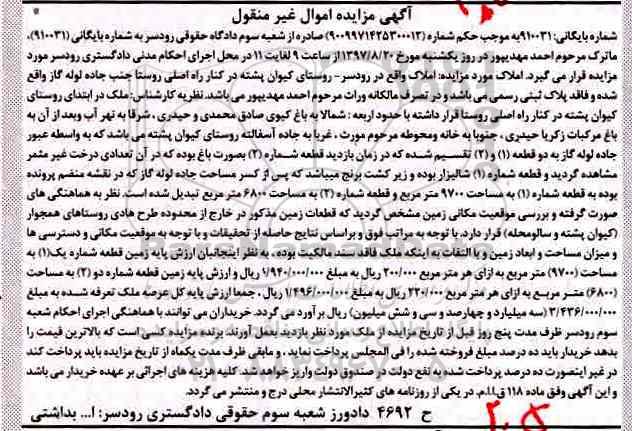 آگهی مزایده اموال غیر منقول
شماره بایگانی: ۹۱۰۰۳۱به موجب حکم شماره (۹۰۰۹۹۷۱۴۲۵۳۰۰۰۱۳) صادره از شعبه سوم دادگاه حقوقی رودسر به شماره بایگانی (۹۱۰۰۳۱)،
ماترک مرحوم احمد مهدیپور در روز یکشنبه مورخ ۱۳۹۷/۸/۲۰ از ساعت ۹ لغایت ۱۱ در محل اجرای احکام مدنی دادگستری رودسر مورد
مزایده قرار می گیرد. املاک مورد مزایده: املاک واقع در رودسر- روستای کیوان پشته در کنار راه اصلی روستا جنب جاده لوله گاز واقع
شده و فاقد پلاک ثبتی رسمی می باشد و در تصرف مالکانه وراث مرحوم احمد مهدیپور می باشد. نظریه کارشناس: ملک در ابتدای روستای
کیوان پشته در کنار راه اصلی روستا قرار داشته با حدود اربعه : شمالا به باغ کیوی صادق محمدی و حیدری ، شرقا به نهر آب وبعد از آن به
باغ مرکبات زکریا حیدری ، جنوبا به خانه ومحوطه مرحوم مورث ، غربا به جاده آسفالته روستای کیوان پشته می باشد که به واسطه عبور
جاده لوله گاز به دو قطعه (۱) و (۲) تقسیم شده که در زمان بازدید قطعه شماره (۲) بصورت باغ بوده که در آن تعدادی درخت غیر مثمر
مشاهده گردید و قطعه شماره (۱) شالیزار بوده و زیر کشت برنج میباشد که پس از کسر مساحت جاده لوله گاز که در نقشه منضم پرونده
بوده به قطعه شماره (۱) به مساحت ۹۷۰۰ متر مربع و قطعه شماره (۲) به مساحت ۶۸۰۰ متر مربع تبدیل شده است. نظر به هماهنگی های
صورت گرفته و بررسی موقعیت مکانی زمین مشخص گردید که قطعات زمین مذکور در خارج از محدوده طرح هادی روستاهای همجوار
(کیوان پشته و سالومحله) قرار دارد. با توجه به مراتب فوق و براساس نتایج حاصله از تحقیقات و با توجه به موقعیت مکانی و دسترسی ها
و میزان مساحت و ابعاد زمین و با التفات به اینکه ملک فاقد سند مالکیت بوده ، به نظر اینجانبان ارزش پایه زمین قطعه شماره یک(۱) به
مساحت (۹۷۰۰) متر مربع به ازای هر متر مربع ۲۰۰/۰۰۰ ریال به مبلغ ۱/۹۴۰/۰۰۰/۰۰۰ ریال و ارزش پایه زمین قطعه شماره دو (۲) به مساحت
(۶۸۰۰) متر مربع به ازای هر متر مربع ۲۲۰/۰۰۰ ریال به مبلغ ۱/۴۹۶/۰۰۰/۰۰۰ ریال ، جمعا ارزش پایه کل عرصه ملک تعرفه شده به مبلغ
۳/۴۳۶/۰۰۰/۰۰۰ (سه میلیارد و چهارصد و سی و شش میلیون) ریال بر آورد می گردد. خریداران می توانند با هماهنگی اجرای احکام شعبه
سوم رودسر ظرف مدت پنج روز قبل از تاریخ مزایده از ملک مورد نظر بازدید بعمل آورند. برنده مزایده کسی است که بالاترین قیمت را
بدهد خریدار باید ده درصد مبلغ فروخته شده را فی المجلس پرداخت نماید ، و مابقی ظرف مدت یکماه از تاریخ مزایده باید پرداخت کند
در غیر اینصورت ده درصد پرداخت شده به نفع دولت در صندوق دولت واریز خواهد شد. کلیه هزینه های اجرائی بر عهده خریدار می باشد
و این آگهی وفق ماده ۱۱۸ ق.ا.ا.م. در یکی از روزنامه های کثیرالانتشار محلی درج و منتشر می گردد.
ح ۴۶۹۲ دادورز شعبه سوم حقوقی دادگستری رودسر: ا... بداشتی